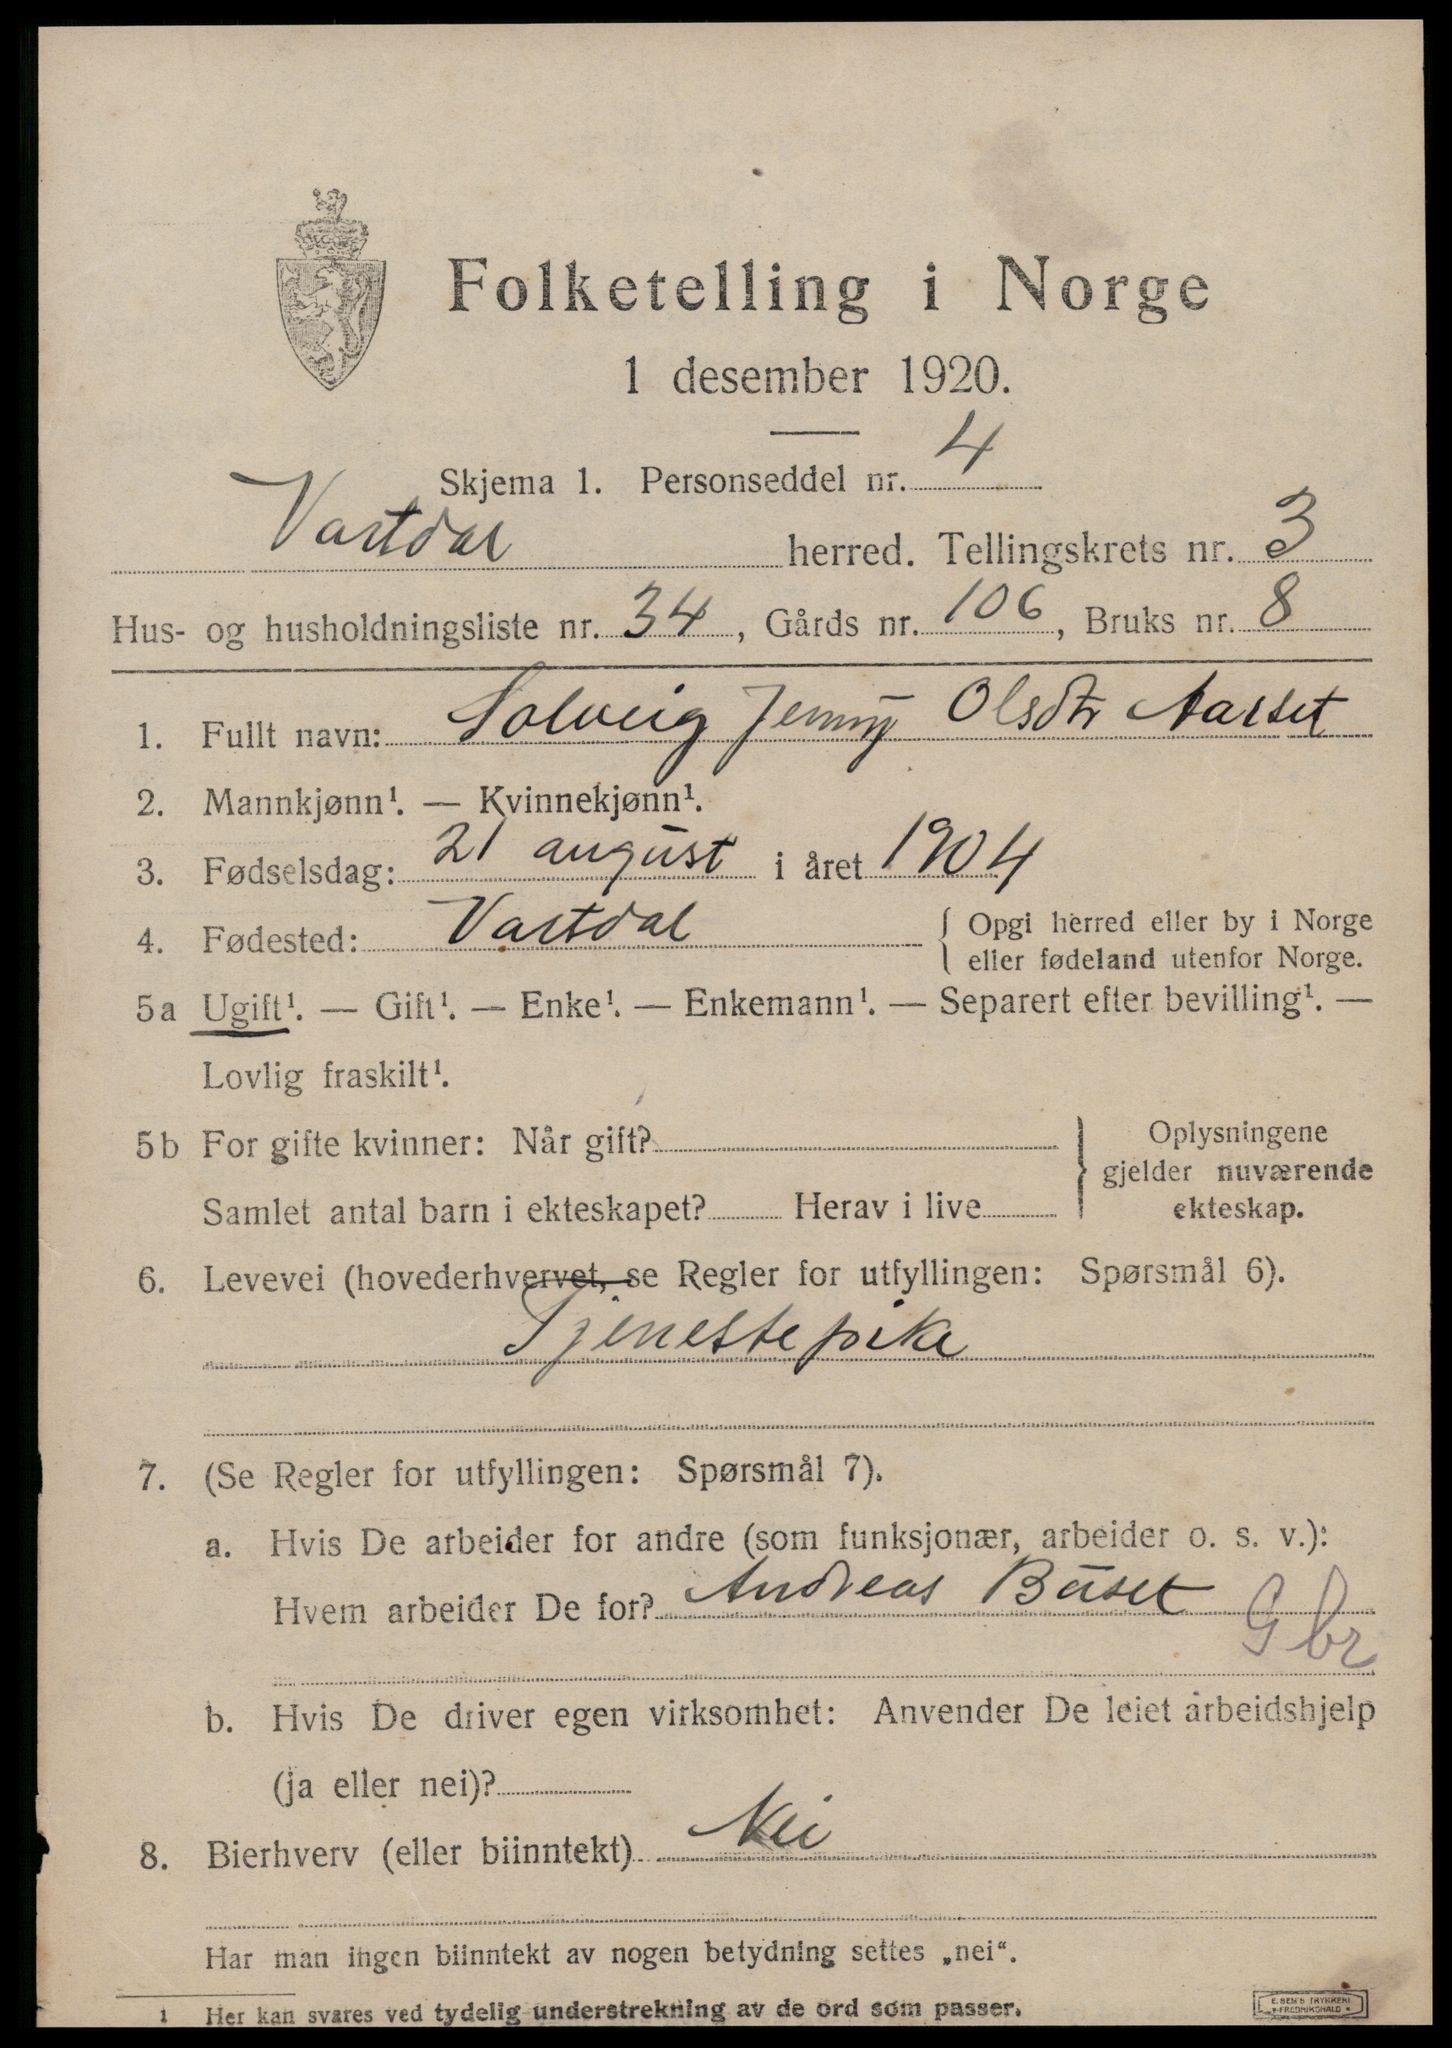 Folketelling i Norge
1 desember 1920.
Skjema 1. Personseddel nr. 4
Vartdal herred. Tellingskrets nr. 3
Hus- og husholdningsliste nr. 34, Gårds nr. 106, Bruks nr. 8
1. Fullt navn: Solveig Jenny Olsdtr Aarset
2. Mannkjønn¹. — Kvinnekjønn¹.
3. Fødselsdag: 21 august i året 1904
4. Fødested: Vartdal { Opgi herred eller by i Norge
eller fødeland utenfor Norge.
5a Ugift¹. — Gift¹. — Enke¹. — Enkemann¹. — Separert efter bevilling¹. —
Lovlig fraskilt¹.
5b For gifte kvinner: Når gift?
Samlet antal barn i ekteskapet? Herav i live
} Oplysningene
gjelder nuværende
ekteskap.
6. Levevei (hovederhvervet, se Regler for utfyllingen: Spørsmål 6).
Tjenestepike
7. (Se Regler for utfyllingen: Spørsmål 7).
a. Hvis De arbeider for andre (som funksjonær, arbeider o. s. v.):
Hvem arbeider De for? Andreas Buset
Gbr
b. Hvis De driver egen virksomhet: Anvender De leiet arbeidshjelp
(ja eller nei)?
8. Bierhverv (eller biinntekt) Nei
Har man ingen biinntekt av nogen betydning settes „nei“.
1 Her kan svares ved tydelig understrekning av de ord som passer.
E. SEM'S TRYKKERI
FREDRIKSHALD